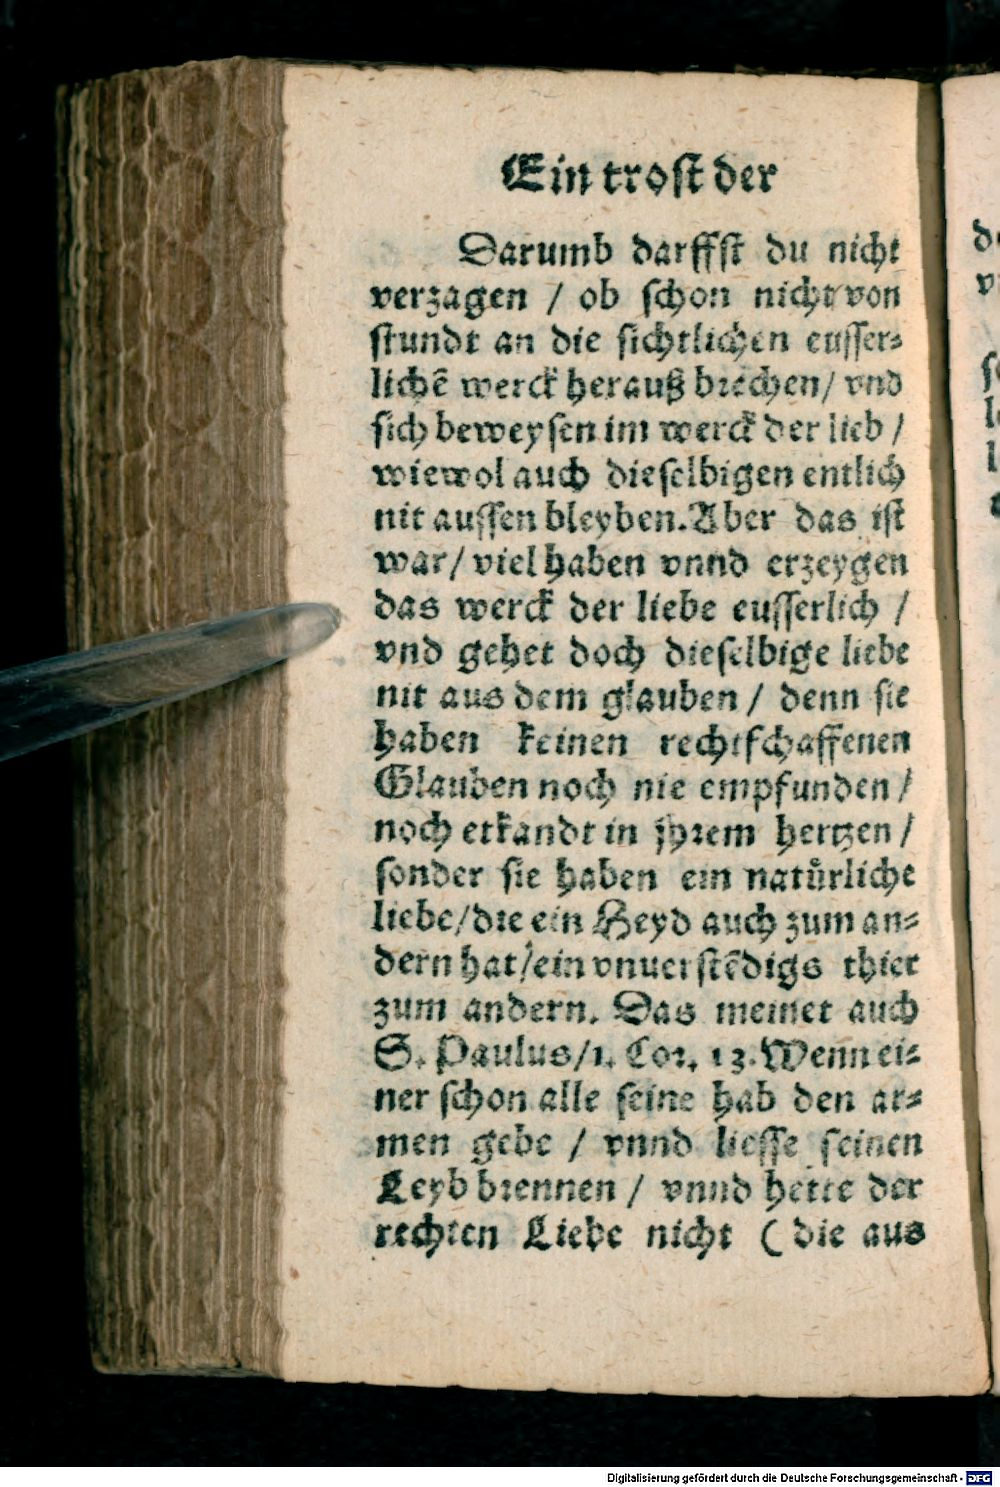 Ein trost der
Darumb darffst du nicht
verzagen / ob schon nicht von
stundt an die sichtlichen eusser⸗
lichẽ werck herauß brechen / vnd
sich beweysen im werck der lieb /
wiewol auch dieselbigen entlich
nit aussen bleyben. Aber das ist
war / viel haben vnnd erzeygen
das werck der liebe eusserlich /
vnd gehet doch dieselbige liebe
nit aus dem glauben / denn sie
haben keinen rechtschaffenen
Glauben noch nie empfunden /
noch erkandt in jhrem hertzen /
sonder sie haben ein natůrliche
liebe / die ein Heyd auch zum an⸗
dern hat / ein vnuerstẽdigs thier
zum andern. Das meinet auch
S. Paulus / 1. Cor. 13. Wenn ei⸗
ner schon alle seine hab den ar⸗
men gebe / vnnd liesse seinen
Leyb brennen / vnnd hette der
rechten Liebe nicht ( die aus
Digitalisierung gefördert durch die Deutsche Forschungsgemeinschaft - DFG